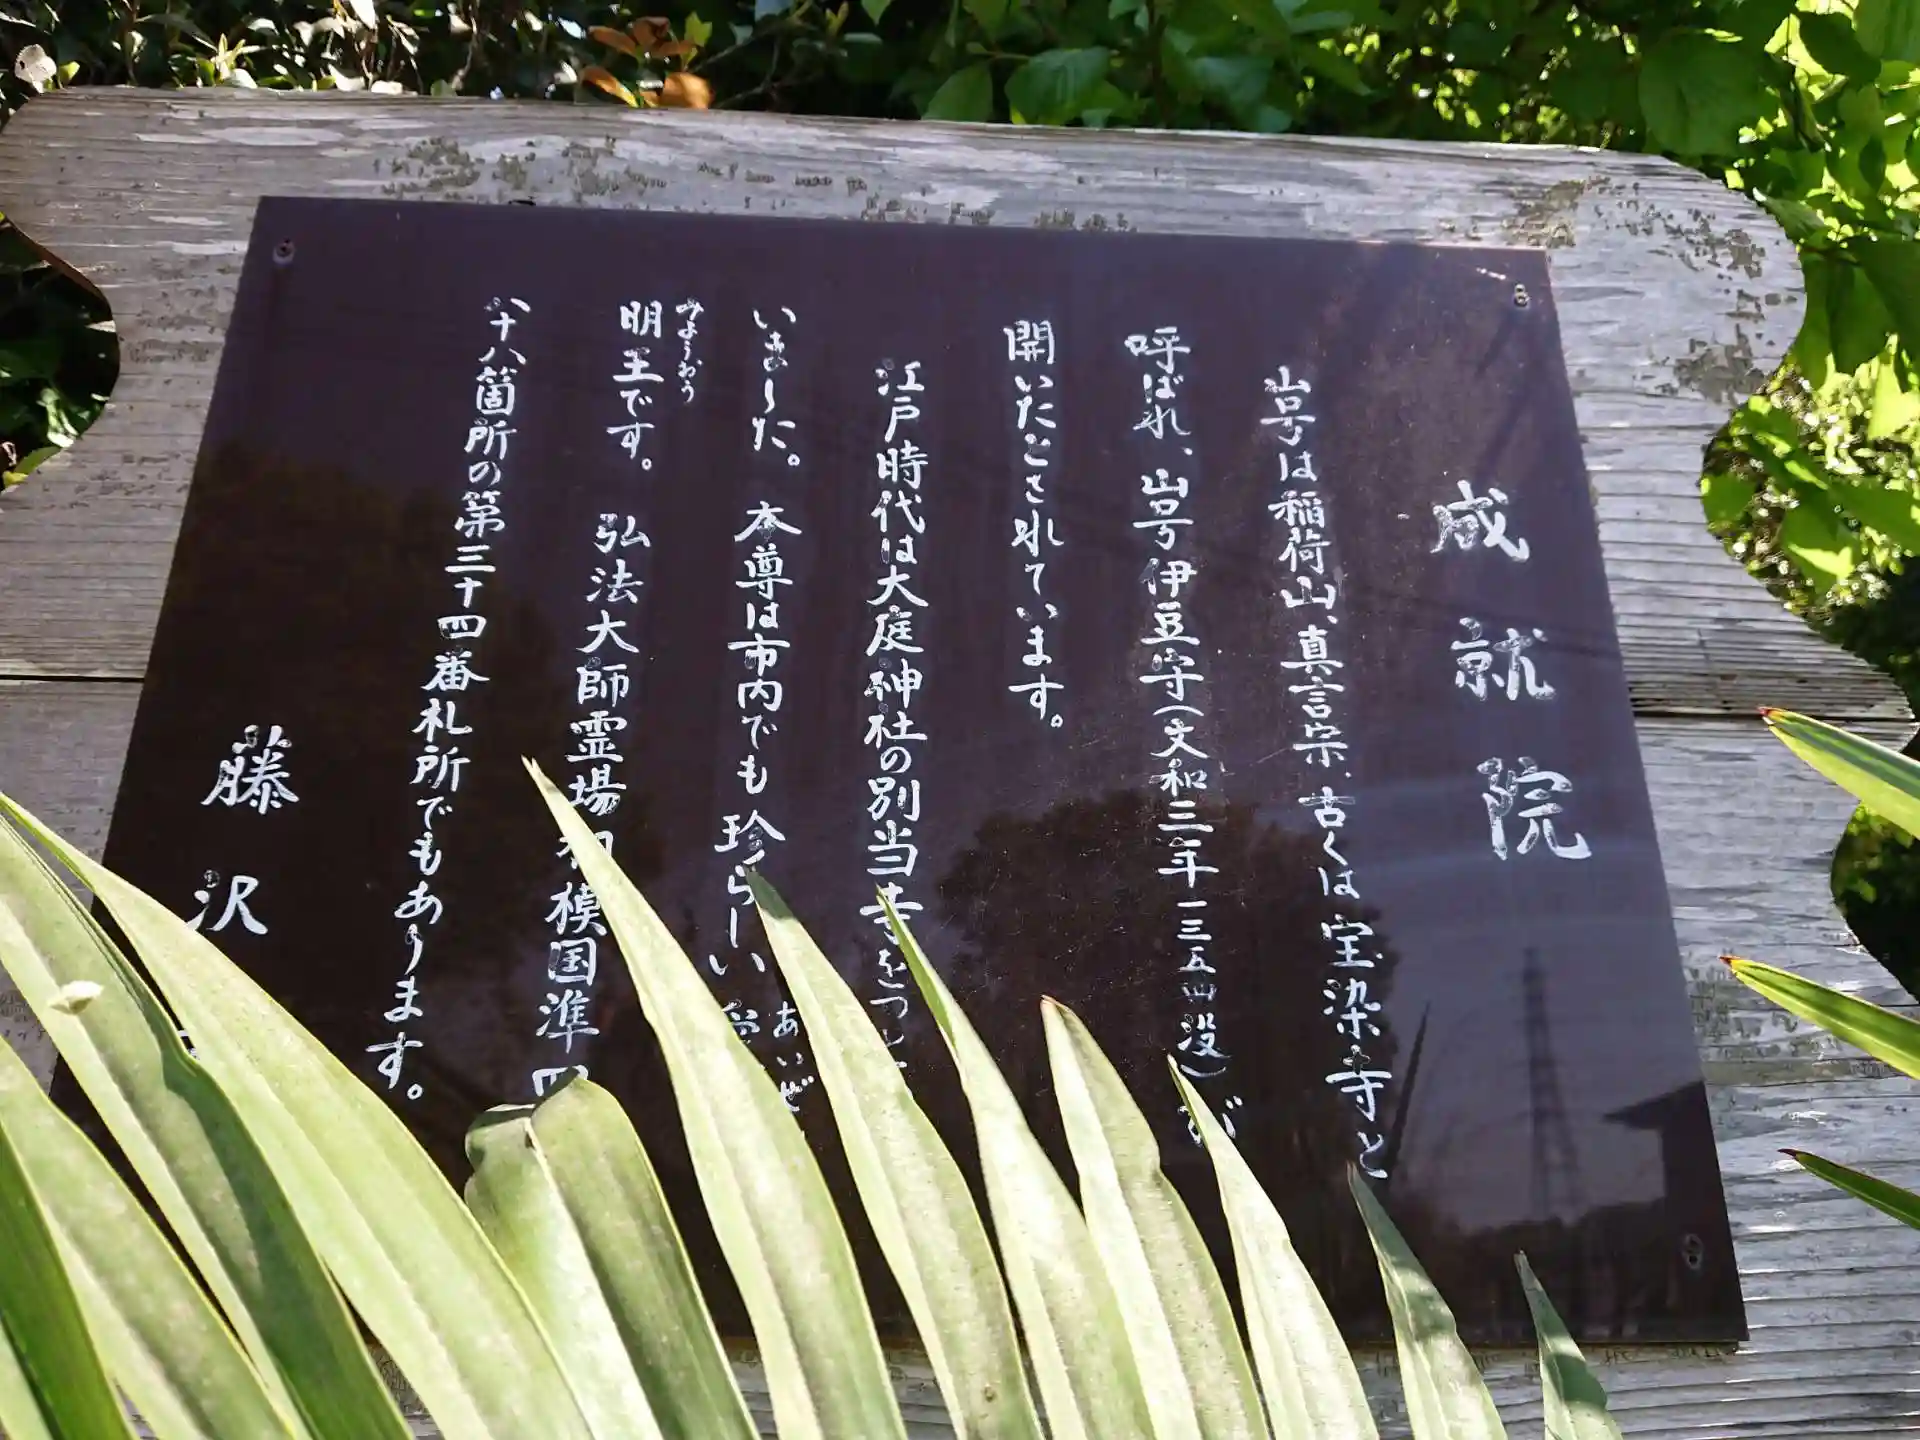 成就院
山号は稲荷山、真言宗、古くは宝染寺と
呼ばれ、山号伊豆守(文和三年一三五四没)が
開いたとされています。
江戸時代は大庭神社の別当寺をつ
いました。本尊は市内でも珍らしい
あいぜ
みょうおう
明王です。弘法大師霊場相模国準四
八十八箇所の第三十四番札所でもあります。
藤沢